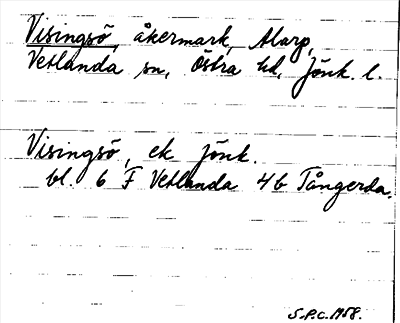 Visingsö, åkermark, Alarp,
Vetlanda sn, Östra hd, Jönk. l.
Visingsö, ek Jönk.
bl. 6 F Vetlanda 4b Tångerda.
S.P.C. 1958.